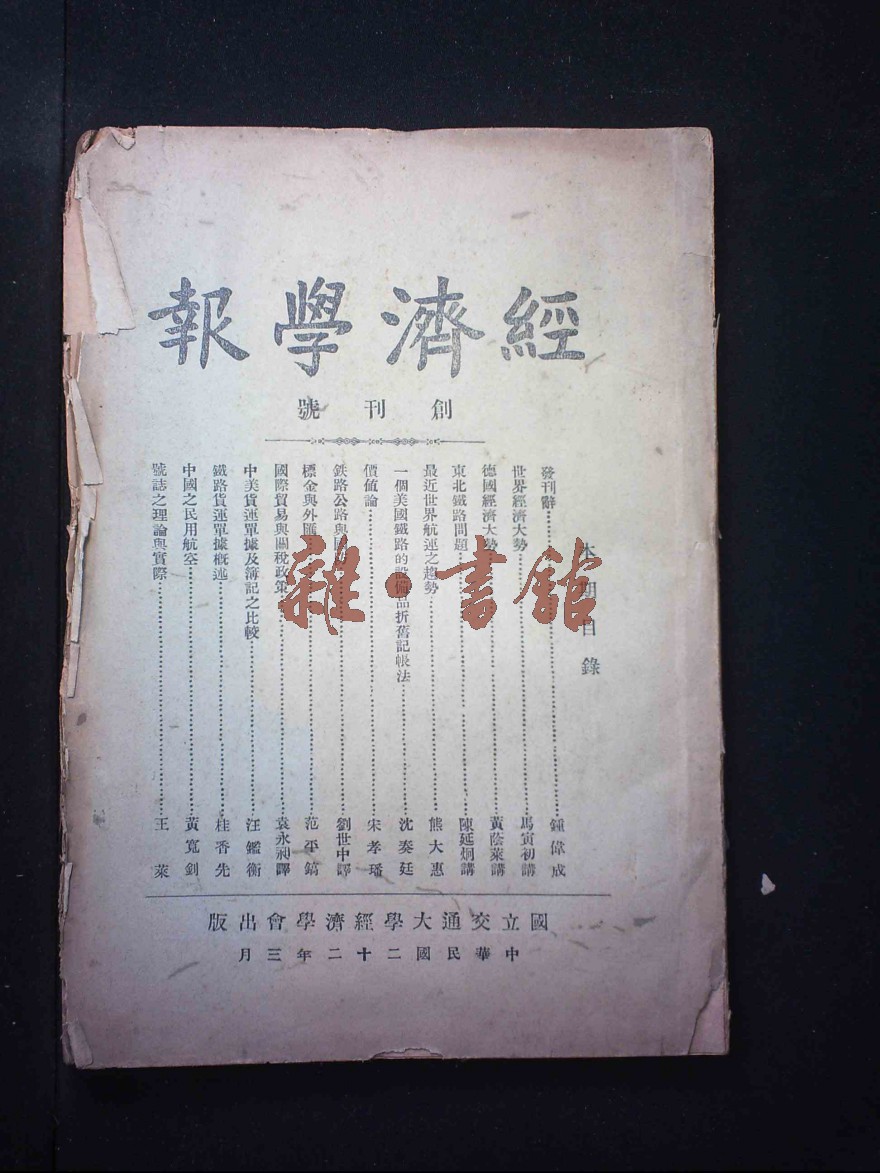 經濟學報
創刊號
本期目錄
發刊辭 鍾偉成
世界經濟大勢 馬寅初講
德國經濟大勢 黃蔭萊講
東北鐵路問題 陳延炯講
最近世界航運之趨勢 熊大惠
一個美國鐵路的設備品折舊記帳法 沈奏廷
價值論 宋孝璠
鉄路公路與 劉世中譯
標金與外匯 范平鎬
國際貿易與關稅政策 袁永昶譯
中美貨運單據及簿記之比較 汪鑑衡
鐵路貨運單據概述 桂香先
中國之民用航空 黃寬釗
號誌之理論與實際 王萊
國立交通大學經濟學會出版
中華民國二十二年三月
雜·書館